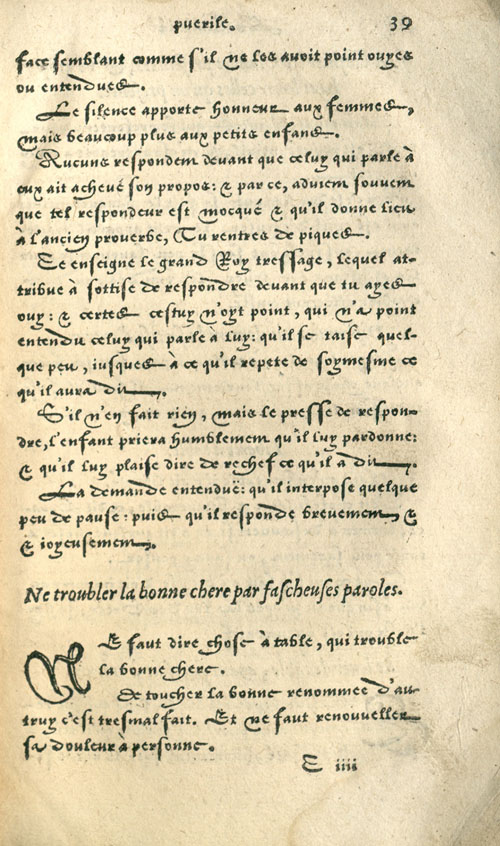 puerile. 39
face semblant comme s'il ne les avoit point ouyes
ou entendues.
Le silence apporte honneur aux femmes,
mais beaucoup plus aux petits enfans.
Aucuns respondent devant que celuy qui parle à
eux ait achevé son propos: & par ce, advient souvent
que tel respondeur est mocqué & qu'il donne lieu
à l'ancien proverbe, Tu rentres de piques.
Ce enseigne le grand Roy tressage, lequel at-
tribue à sottise de respondre devant que tu ayes
ouy: & certes cestuy n'oyt point, qui n'a point
entendu celuy qui parle a luy: qu'il se taise quel-
que peu, iusques à ce qu'il repete de soymesme ce
qu'il aura dit.
S'il n'en fait rien, mais le presse de respon-
dre, l'enfant priera humblement qu'il luy pardonne:
& qu'il luy plaise dire de rechef ce qu'il a dit.
La demande entenduë: qu'il interpose quelque
peu de pause: puis qu'il responde brevement, &
& ioyeusement.
Ne troubler la bonne chere par fascheuses paroles.
NE faut dire chose à table, qui trouble
la bonne chere.
De toucher la bonne renommee d'au-
truy c'est tresmal fait. Et ne faut renouveller
sa douleur à personne.
E iiii